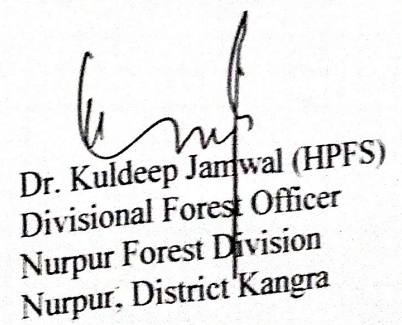 Dr. Kuldeep Jamwal (HPFS)
Divisional Forest Officer
Nurpur Forest Division
Nurpur, District Kangra